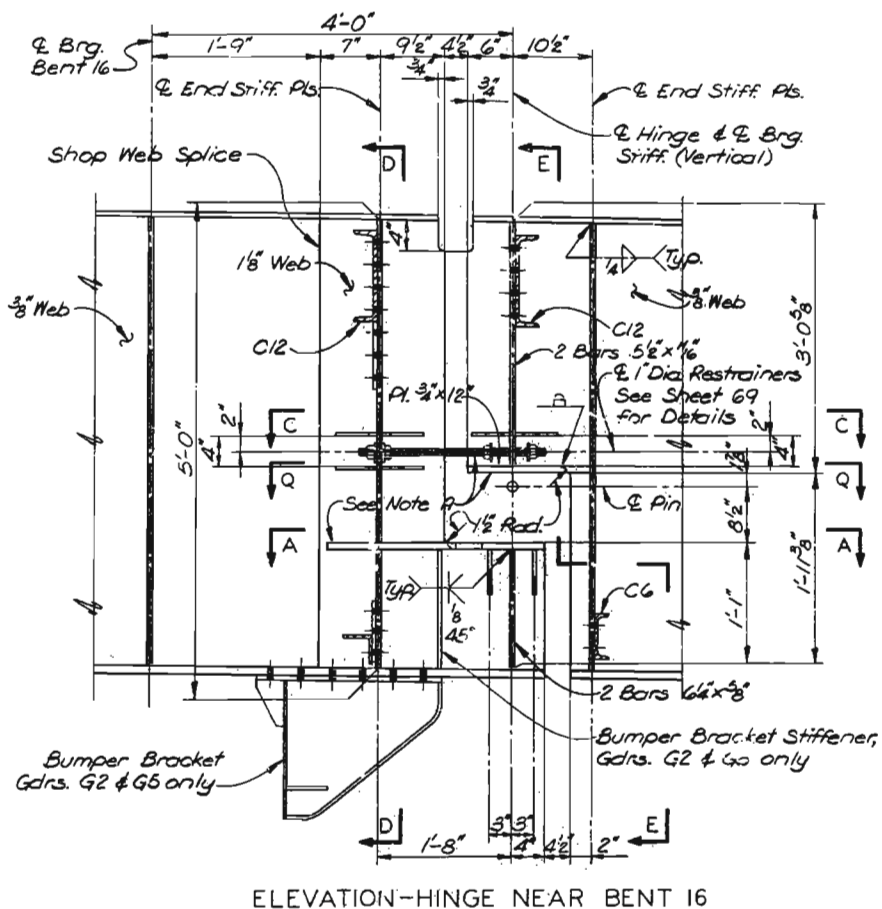 4'-0"
℄ Brg.
Bent 16
1'-9"
7"
9½"
4½"
6"
10½"
¾"
¾"
℄ End Stiff. Pls.
℄ End Stiff. Pls.
℄ Hinge & ℄ Brg.
Stiff. (Vertical)
Shop Web Splice
D
E
4"
1⅛" Web
¼
Typ.
⅜" Web
⅜" Web
C12
C12
3'-0⅝"
2 Bars 5½" x 11/16"
℄ 1" Dia. Restrainers
See Sheet 69
for Details
Pl. ¾" x 12"
B
C
2"
4"
2"
4"
C
5'-0"
Q
Q
℄ Pin
See Note A
1½" Rad.
8½"
A
A
1'-11⅜"
Typ.
⅛
45°
C6
1'-1"
2 Bars 6¼" x ⅝"
Bumper Bracket
Gdrs. G2 & G5 only
Bumper Bracket Stiffener,
Gdrs. G2 & G5 only
D
E
3"
3"
1'-8"
4"
4½"
2"
ELEVATION-HINGE NEAR BENT 16